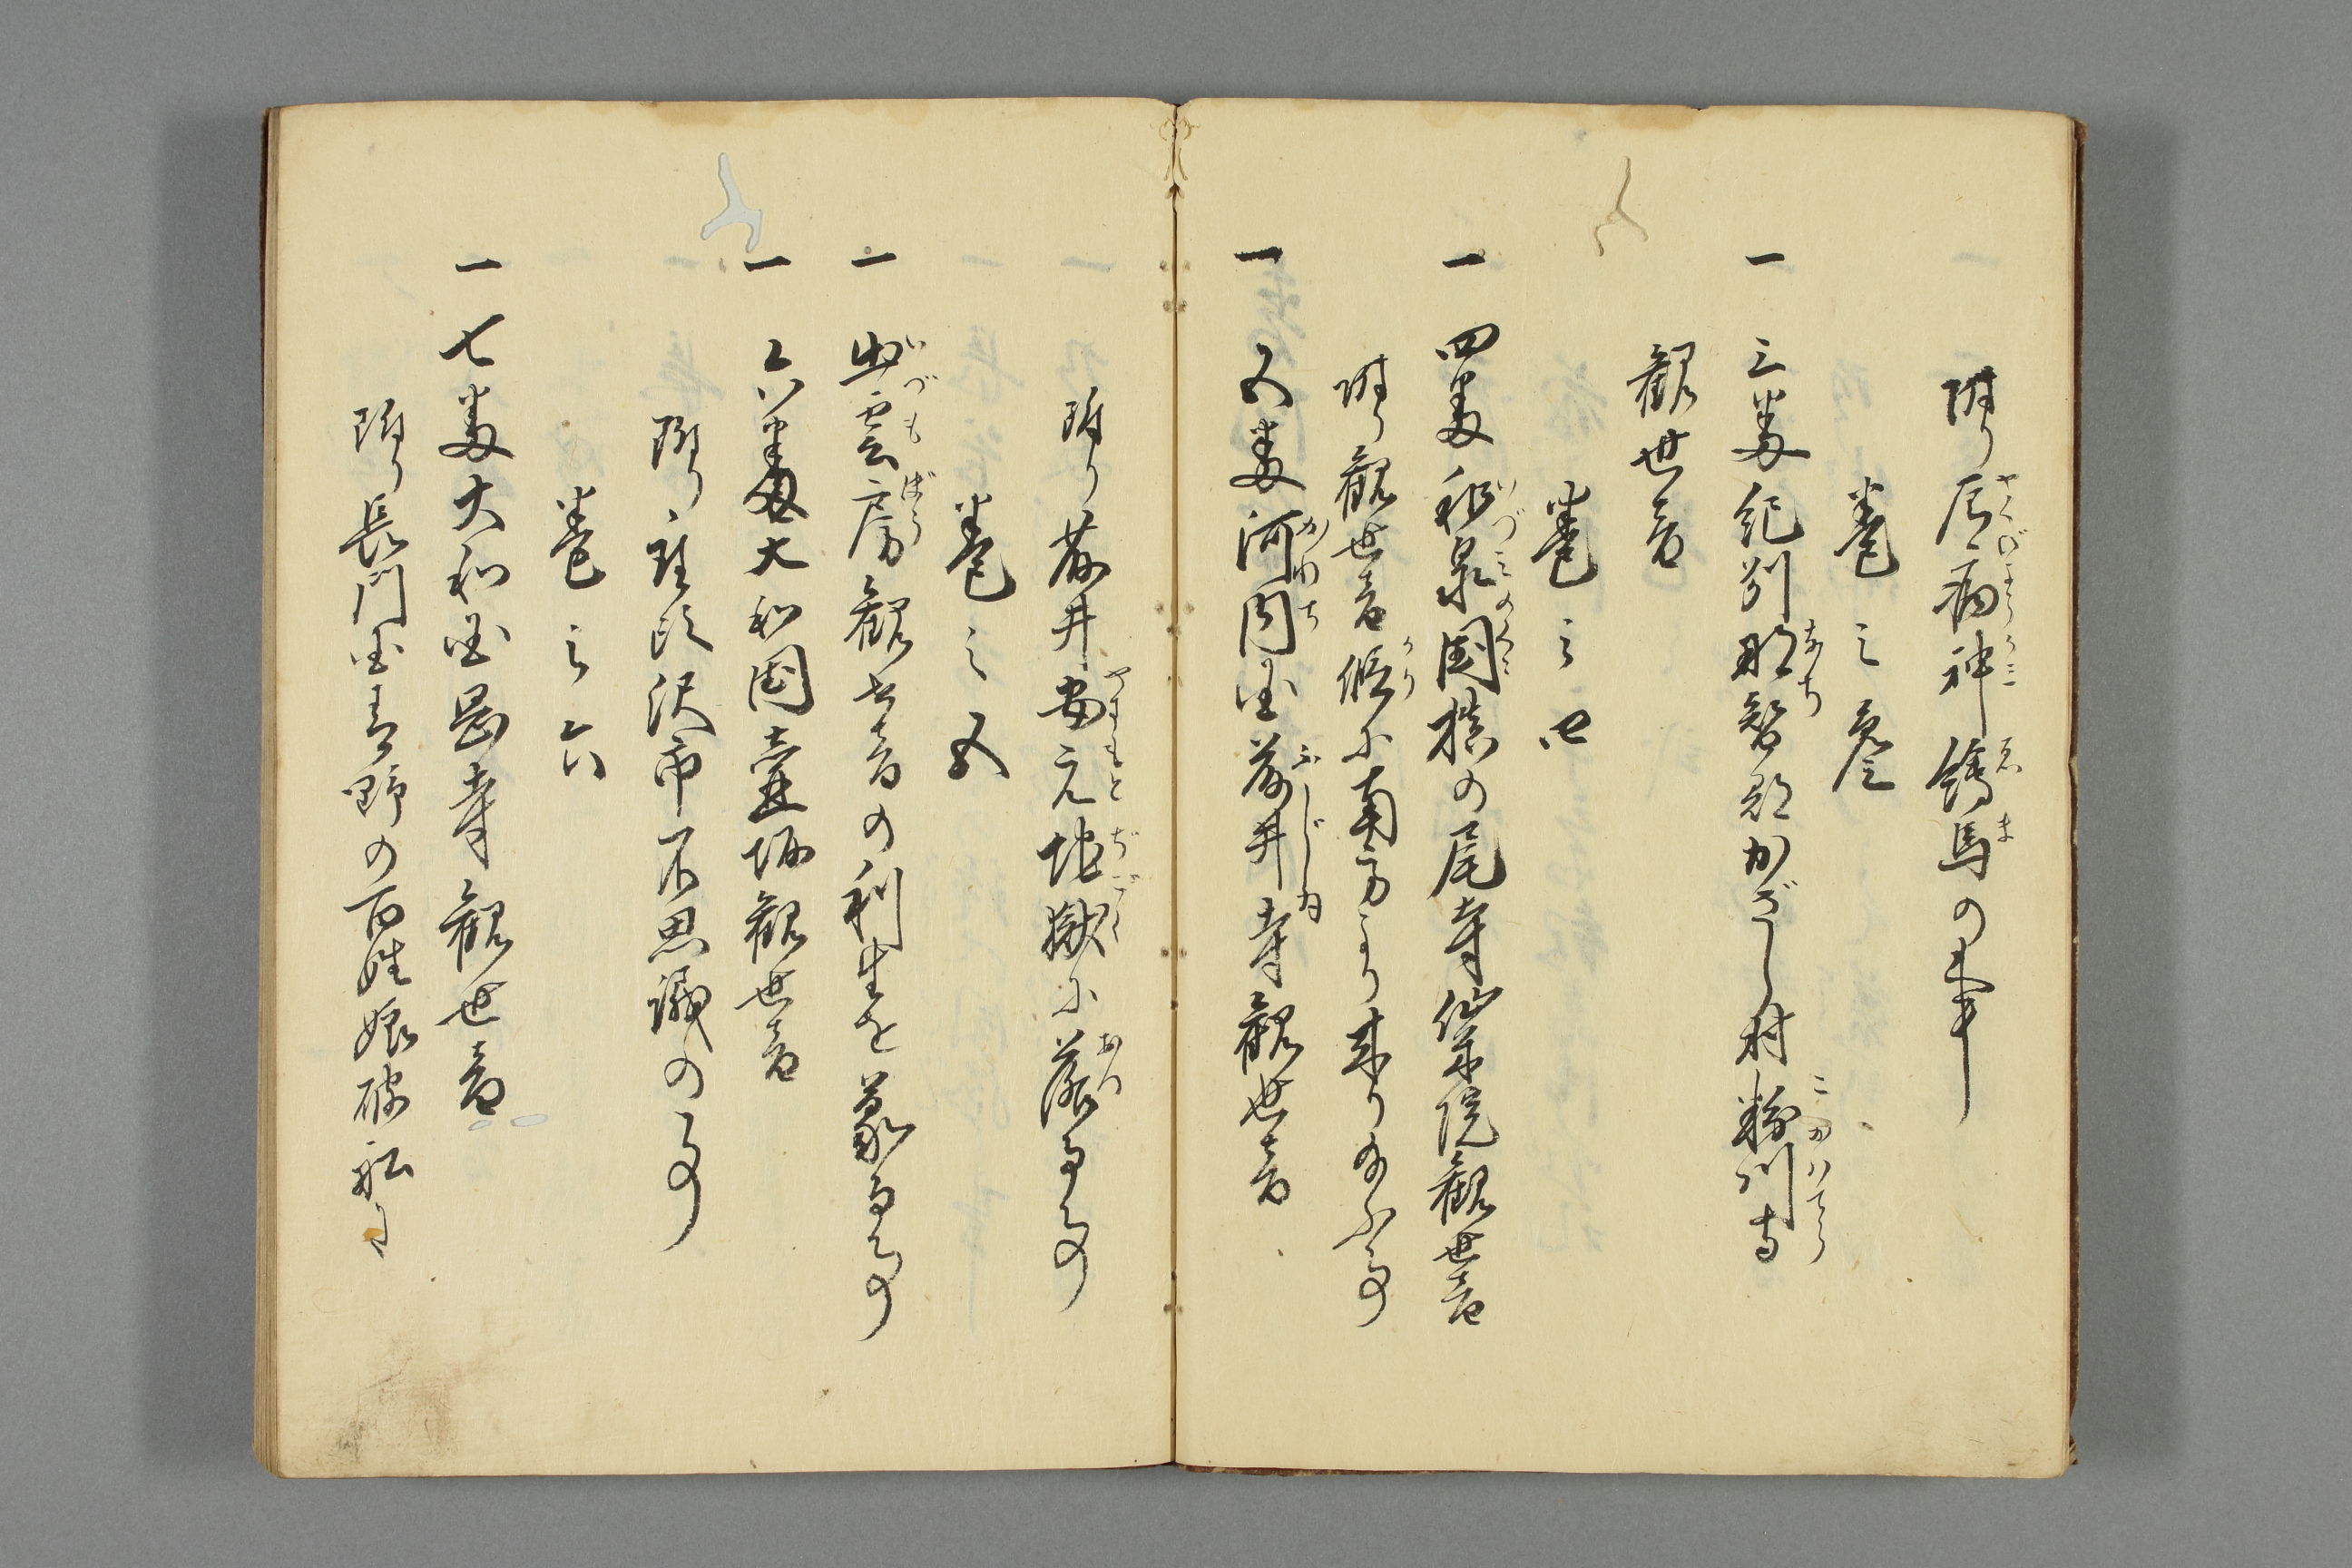 附り厄病神繪馬の事
巻之参
一 三番紀刕那智郡かざし村粉川寺
観世音
巻之四
一 四番和泉国槙の尾寺仙薬院観世音
附り観世音假に南方より来り給ふ事
一 五番河内国葛井寺観世音
附り藤井安元地獄に落る事
巻之五
一 出雲房観世音の利生を蒙る事
一 六番大和国壷坂観世音
附り座頭沢市不思議の事
巻之六
一 七番大和国岡寺観世音
附り長門国青野の百姓娘破舩に